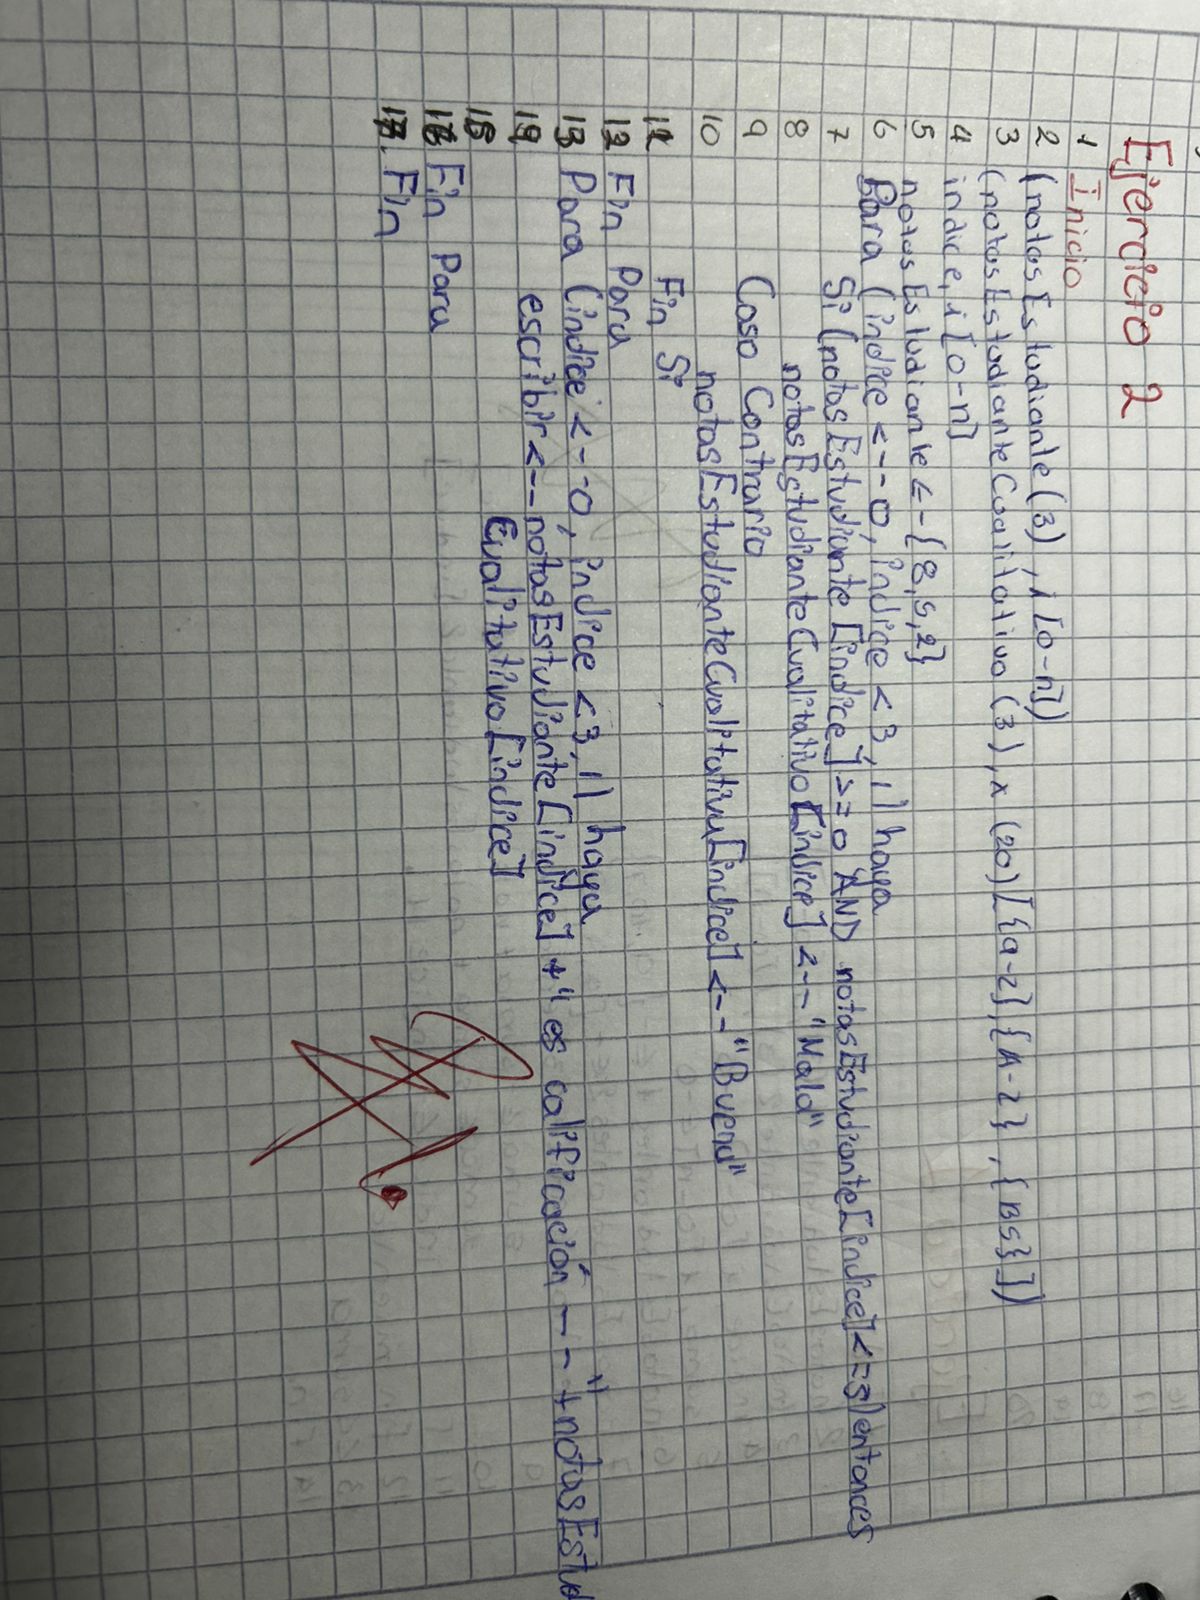 Ejercicio 2
1 Inicio
2 (notasEstudiante(3), i [0-n])
3 (notasEstudianteCualitativo(3), x (20)[{a-z},{A-Z},{BS}])
4 indice, i [0-n]
5 notasEstudiante <-{8,5,2}
6 Para (indice <--0, indice <3, 1) haga
7 Si (notasEstudiante[indice] >=0 AND notasEstudiante[indice]<=5) entonces
8 notasEstudianteCualitativo[indice] <-- "Malo"
9 Caso Contrario
10 notasEstudianteCualitativo[indice] <-- "Bueno"
11 Fin Si
12 Fin Para
13 Para (indice <--0, indice <3, 1) haga
14 escribir <--notasEstudiante[indice] +" es calificación --" +notasEstu
15 Cualitativo[indice]
16 Fin Para
17. Fin